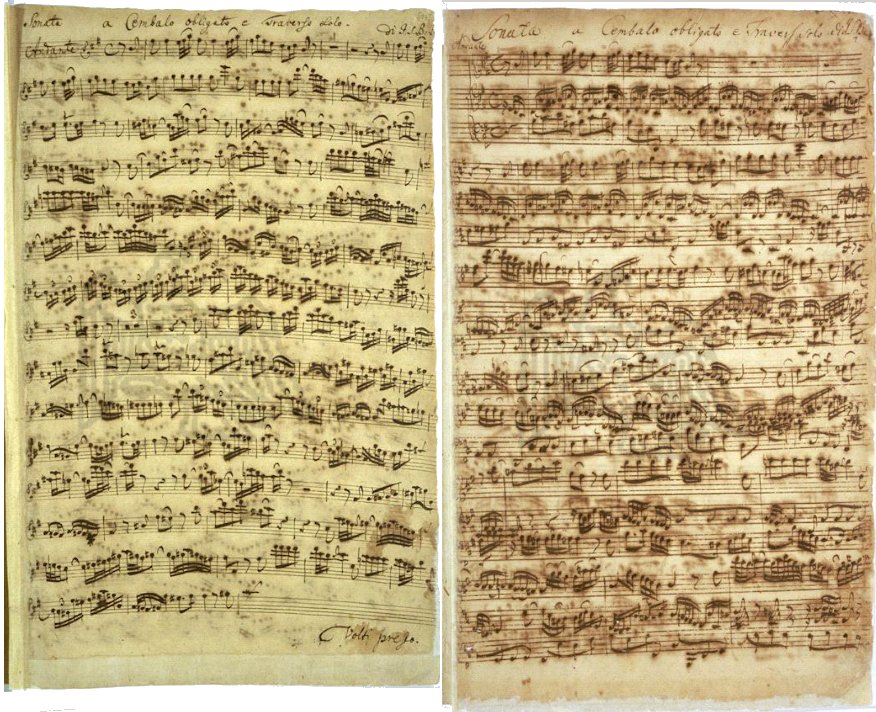 Sonata a Cembalo obligato e Traverso solo.
di J. S. Bach
Andante
Volti presto.
Sonata a Cembalo obligato e Traverso solo di J. S. Bach
Andante